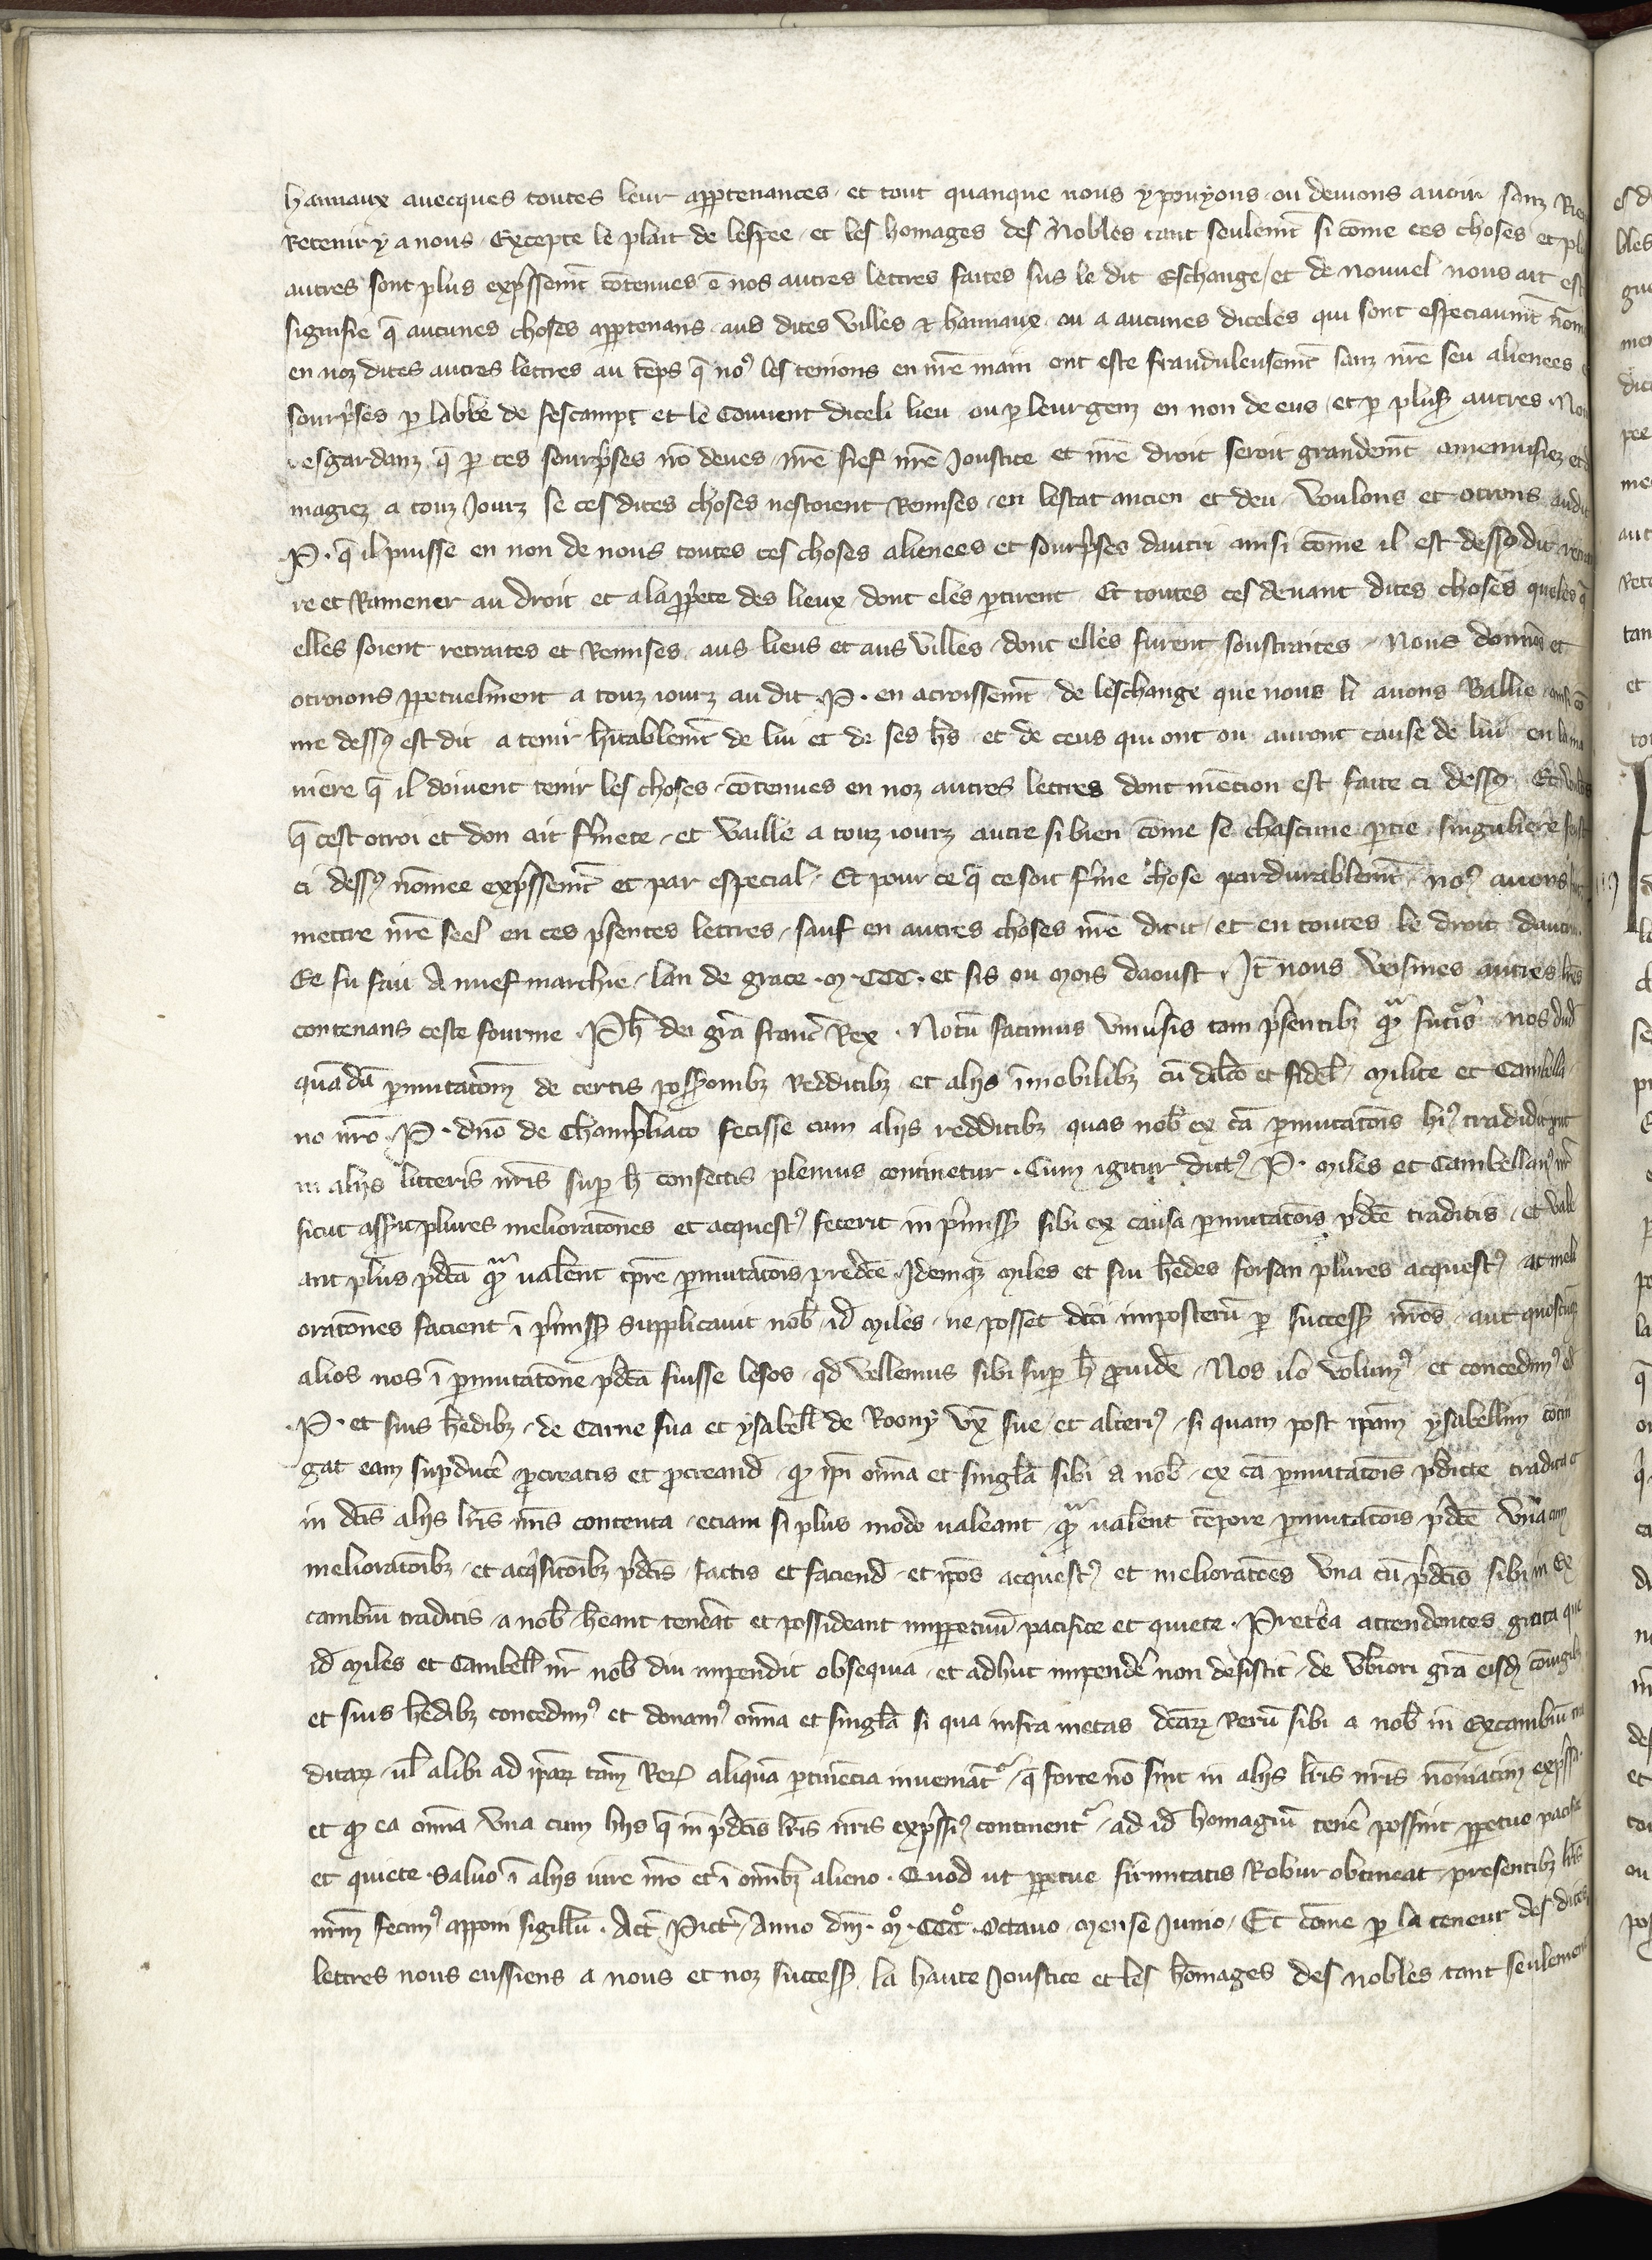 hamaux auecques toutes leur apptenances et tout quanque nous y pouyons ou deuions auoir sanz
Retenir y a nous Excepte le plait de lespee et les homages des Nobles tant seulemt si cōme ces choses et
autres sont plus expssemt cōtenues ē nos autres lettres faites sus le dit Eschange et de nouuel nous ait
signifie q̄ aucunes choses apptenans aus dites villes & hamaux ou a aucunes diceles qui sont especiaumt
en noz dites autres lettres au tēps q̄ noꝰ les tenions en nr̄e main ont este frauduleusemt sanz nr̄e seu alienees
sourpses p labbe de fescampt et le Couuent diceli lieu ou p leur genz en non de eus et p plus autres
esgardanz q̄ p ces sourpses nō deues nr̄e fief nr̄e Joustice et nr̄e droit seroit grandemt amenuisiez
magiez a touz Jourz se ces dites choses nestoient Remises en lestat ancien et deu voulons et otrions
.P. q̄ il puisse en non de nous toutes ces choses alienees et sourpses dautri ainsi cōme il est dessꝰ dit
re et Ramener au droit et a la pprete des lieux dont eles ptirent Et toutes ces deuant dites choses queles q̄
elles soient retraites et Remises aus lieus et aus villes dont elles furent soustraites Nous donnōs et
otroions ppetuelment a touz iourz au dit .P. en acroissemt de leschange que nous li auons Ballie
me dessꝰ est dit a tenir hr̄itablemt de lui et de ses hs et de ceus qui ont ou auront cause de lui en la ma
niere q̄ il doiuent tenir les choses cōtenues en noz autres lettres dont mēcion est faite ci dessꝰ Et
q̄ cest otroi et don ait fmete et vaille a touz iourz autre si bien cōme se chascune ptie singuliere
ci dessꝰ nōmee expssemt et par especial Et pour ce q̄ ce soit fme chose pardurablemt noꝰ auons
mettre nr̄e seel en ces psentes lettres sauf en autres choses nr̄e dit et en toutes le droit dautri
Ce fu fait A nuef marchie lan de grace .M.CCC. et sis ou Mois daoust It nous veismes autres lr̄es
contenans ceste fourme Ph dei grā franc Rex Notū facimus vniusis tam psentibꝫ qᵐ futis nos
quādā pmutatōm de certis possionibꝫ Redditibꝫ et alijs īmobilibꝫ cū dilcō et fidel Milite et Cambella
no nr̄o .P. dno de Champliaco fecisse cum alijs redditibꝫ quas nob ex cā pmutatōis hiꝰ tradidit
in alijs litteris nr̄is sup h confectis plenius continetur Cum igitur dictꝰ .P. Miles et Cambellanꝰ nr̄
sicut asserit plures melioratōnes et acquestꝰ fecerit in pmissis sibi ex causa pmutatōis pdcē traditis et vale
ant plus pdcā qᵐ ualent tpre pmutatōis predcē Idemqꝫ Miles et sui hedes forsan plures acquestꝰ at meli
oratōnes facient ī pmissis supplicauit nob id Miles ne posset dici imposterū p success nr̄os aut
alios nos ī pmutatōne pdcā fuisse lesos qd vellemus sibi sup h puide Nos īo volumꝰ et concedimꝰ
.P. et suis hedibꝫ de Carne sua et ysabell de Roony vx sue et alteriꝰ si quam post ipam ysabellim
gat eam supducē pcreatis et pcreand qᵈ ipi omīa et singlā sibi a nob ex cā pmutatōis pdicte tradita
in dcīs alijs lris nr̄is contenta etiam si plus modo ualeant qᵐ ualent tēpore pmutatōis pdcē vna cum
melioratōibꝫ et acqsitōibꝫ pdcīs factis et faciend et ipos acquestꝰ et melioratōes vna cū pdcīs sibi in Ex
cambiū traditis a nob heant teneāt et possideant imppetuū pacifice et quiete Preterea attendentes grata que
id Miles et Cambell nr̄ nob diu impendit obsequia et adhuc impendē non desistit de vbiori grā eisd
et suis hedibꝫ concedimꝰ et donamꝰ omīa et singlā si qua infra metas dcāꝝ Rerū sibi a nob in Excambiū
ditaꝝ ul alibi ad ipaꝝ tam Reꝝ aliquā ptinēcia inueniāt q̄ forte nō sint in alijs lris nr̄is nōmiatim
et qᵈ ea omīa vna cum hijs q̄ in pdcīs lris nr̄is expssiꝰ continent ad id homagiū tenē possint ppetuo
et quiete Saluo ī alijs iure nr̄o et ī omībꝫ alieno Quod ut ppetue firmitatis Robur obtineat presentibꝫ lris
nr̄m fecimꝰ apponi sigillū Act Pict Anno dni .M°.CCC°. Octauo Mense Junio Et cōme p la teneur des dites
lettres nous eussiens a nous et noz success la haute Joustice et les homages des nobles tant seulement